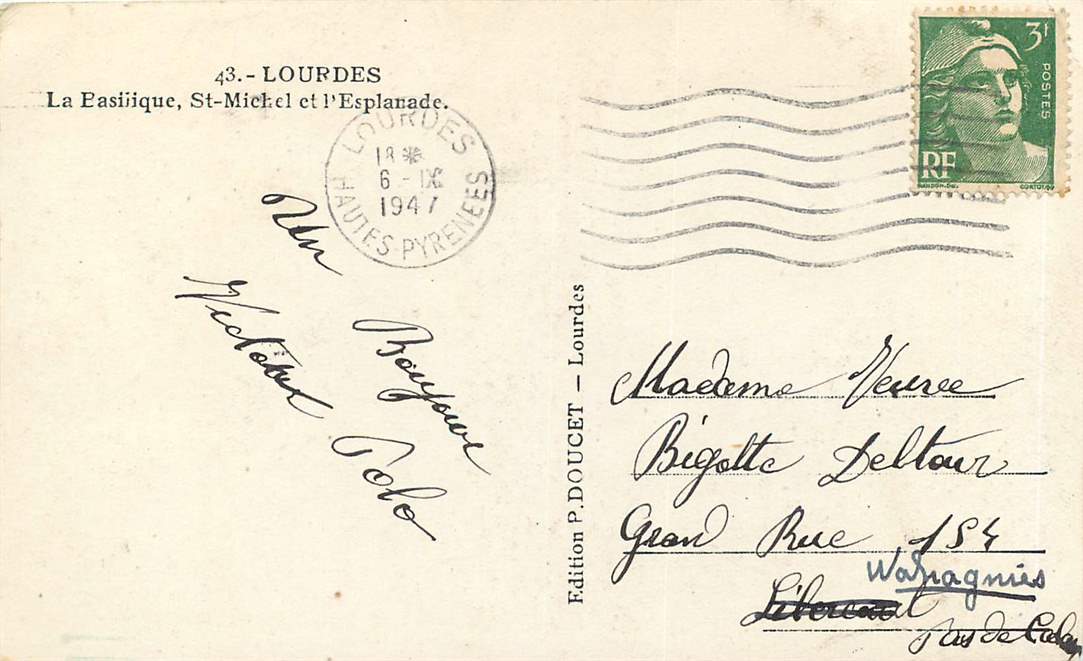 43.- LOURDES
La Basilique, St-Michel et l'Esplanade.
LOURDES
18 *
6 - IX
1947
HAUTES-PYRENEES
3f
POSTES
RF
GANDON.DEL
CORTOT.SC
Un Bonjour
Victor
Edition P. DOUCET — Lourdes
Madame Veuve
Bigotte Deltour
Grand Rue 154
Wahagnies
Libercourt
Pas de Calais